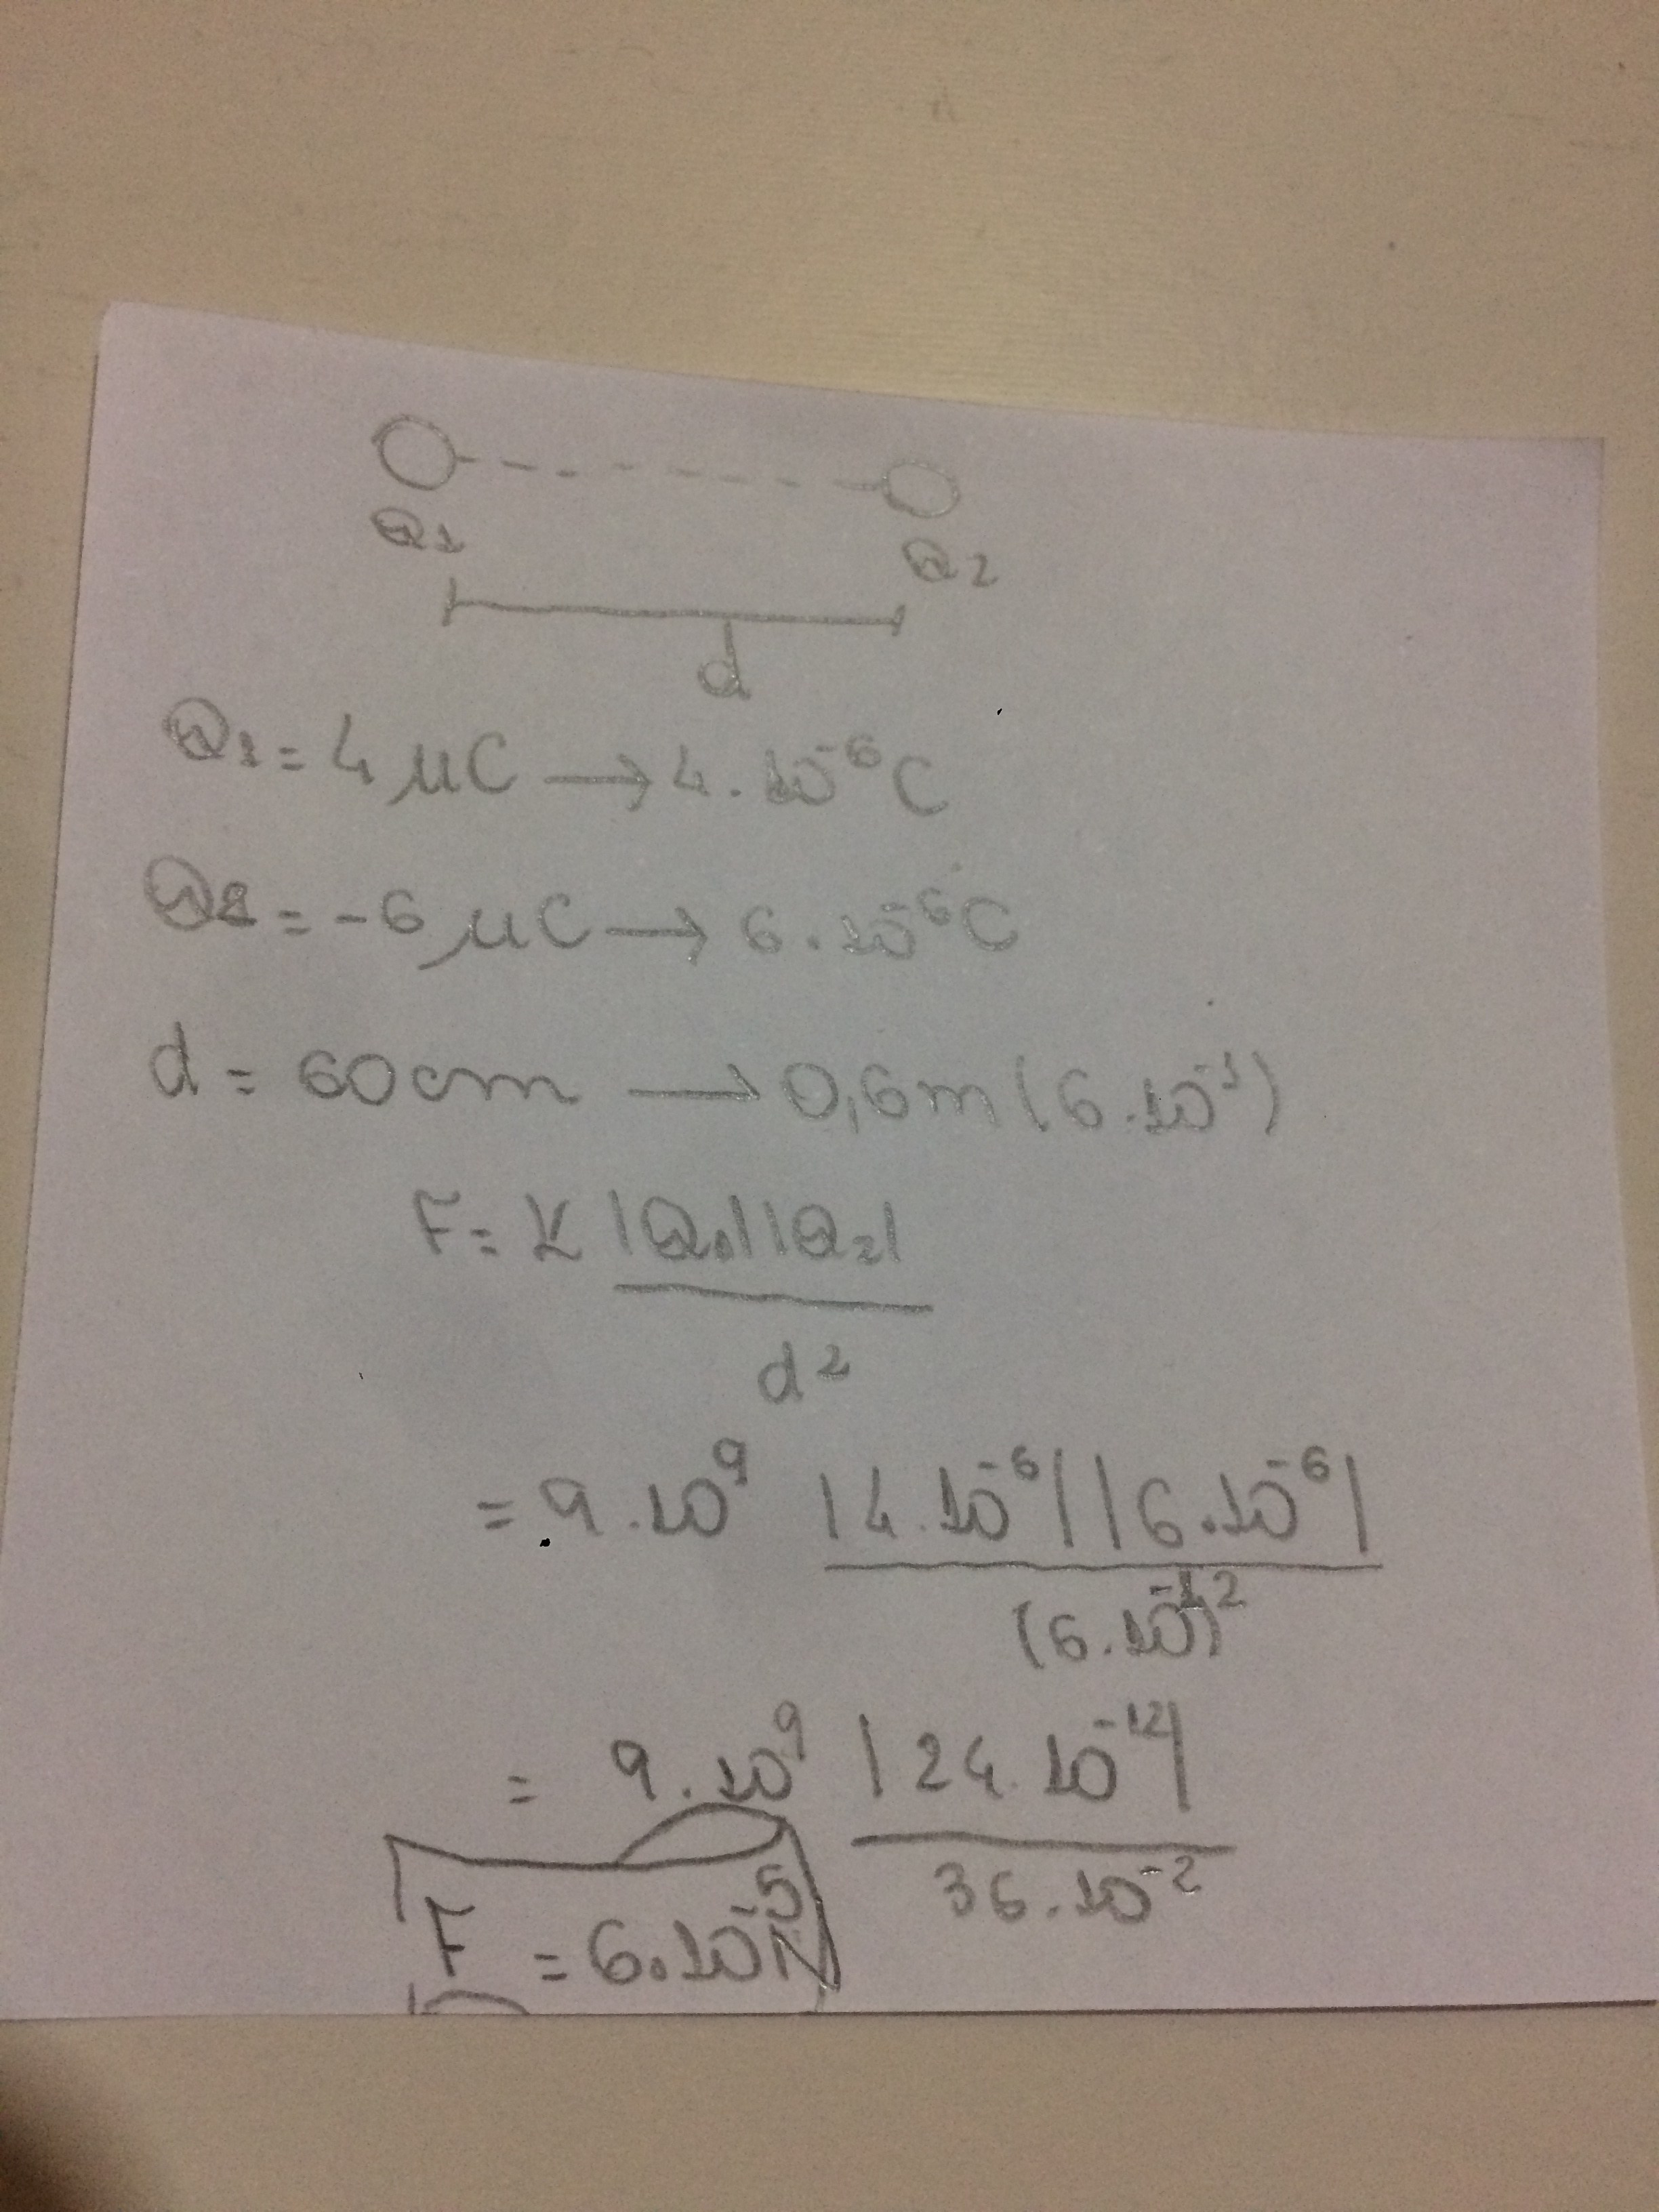 Q1 Q2
d
Q1 = 4 μC → 4 . 10⁻⁶ C
Q2 = -6 μC → 6 . 10⁻⁶ C
d = 60 cm → 0,6 m (6 . 10⁻¹)
F = K |Q1| |Q2|
d²
= 9 . 10⁹ |4 . 10⁻⁶| |6 . 10⁻⁶|
(6 . 10⁻¹)²
= 9 . 10⁹ |24 . 10⁻¹²|
36 . 10⁻²
F = 6 . 10⁻⁵ N